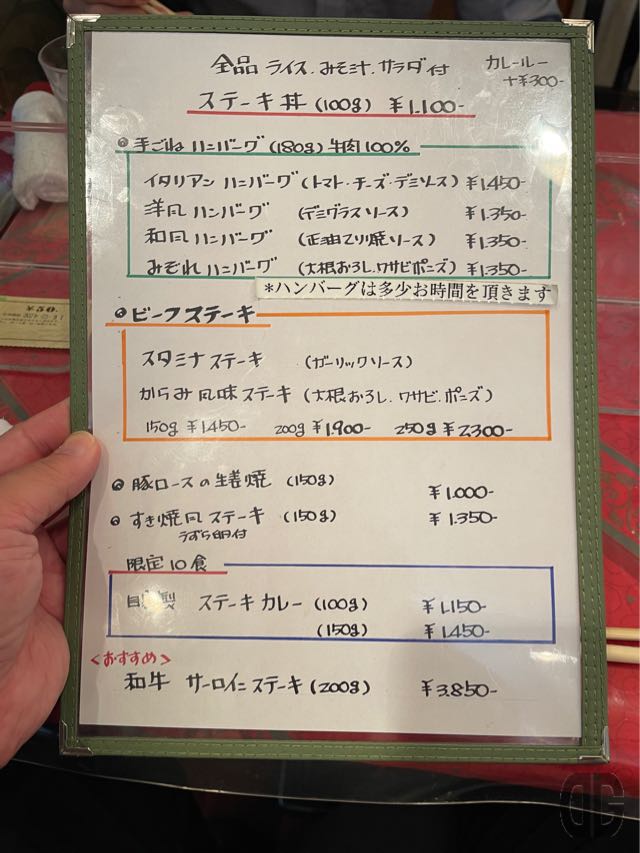 全品 ライス.みそ汁.サラダ付
カレールー
+¥300-
ステーキ丼 (100g) ¥1.100-
手ごねハンバーグ (180g) 牛肉100%
イタリアンハンバーグ (トマト・チーズ・デミソース) ¥1.450-
洋風ハンバーグ (デミグラスソース) ¥1.350-
和風ハンバーグ (正油てり焼ソース) ¥1.350-
みぞれハンバーグ (大根おろし.ワサビポニズ) ¥1.350-
*ハンバーグは多少お時間を頂きます
ビーフステーキ
スタミナステーキ (ガーリックソース)
からみ風味ステーキ (大根おろし.ワサビ.ポニズ)
150g ¥1.450- 200g ¥1.900- 250g ¥2.300-
豚ロースの生姜焼 (150g) ¥1.000-
すき焼風ステーキ (150g) ¥1.350-
うずら卵付
限定10食
自 製 ステーキカレー (100g) ¥1.150-
(150g) ¥1.450-
<おすすめ>
和牛 サーロインステーキ (200g) ¥3.850-
¥50